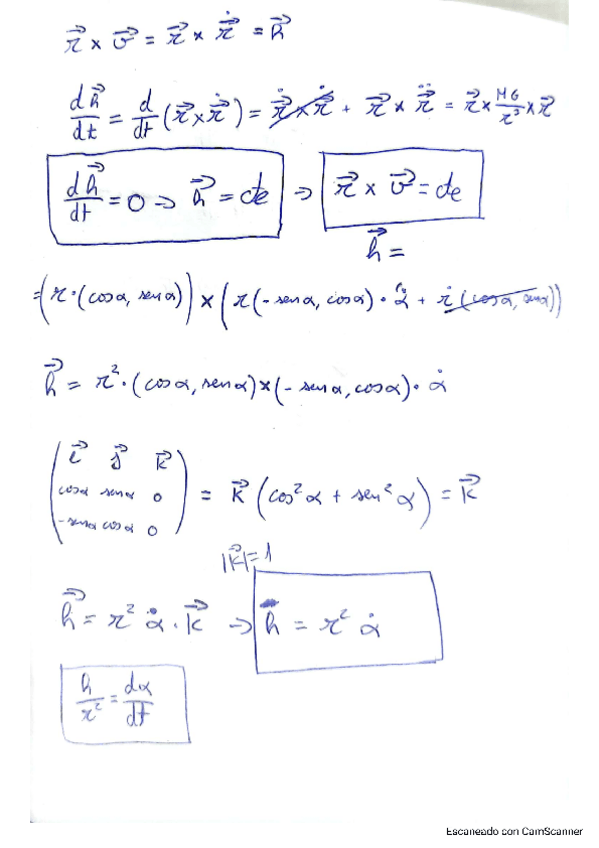 r⃗ × v⃗ = r⃗ × ṙ⃗ = h⃗
dh⃗/dt = d/dt (r⃗ × ṙ⃗) = ṙ⃗ × ṙ⃗ + r⃗ × r̈⃗ = r⃗ × MG/r³ × r⃗
dh⃗/dt = 0 ⇒ h⃗ = cte ⇒ r⃗ × v⃗ = cte
h⃗ =
= (r · (cosα, senα)) × (r (- senα, cosα) · α̇ + ṙ (cosα, senα))
h⃗ = r² · (cosα, senα) × (- senα, cosα) · α̇
i⃗ j⃗ k⃗
cosα senα 0 = k⃗ (cos²α + sen²α) = k⃗
-senα cosα 0
|k⃗| = 1
h⃗ = r² α̇ · k⃗ ⇒ h = r² α̇
h/r² = dα/dt
Escaneado con CamScanner